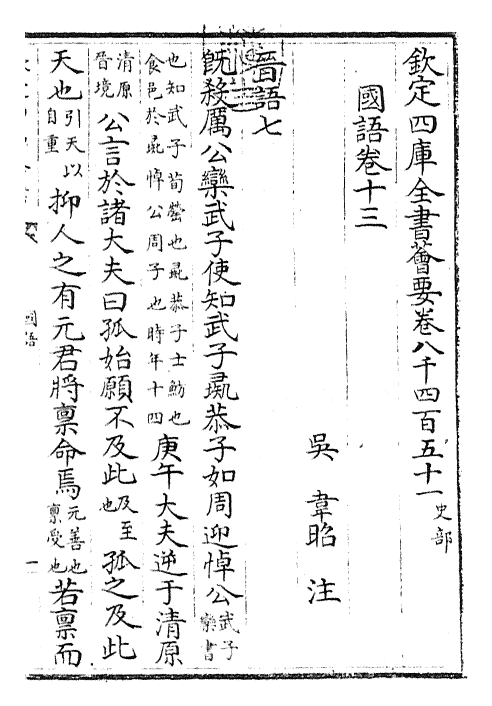 欽定四庫全書薈要卷八千四百五十一 史部
國語卷十三
吳 韋昭 注
晉語七
既殺厲公欒武子使知武子彘恭子如周迎悼公 武子 欒書
也知武子荀罃也彘恭子士魴也 食邑於彘悼公周子也時年十四 庚午大夫逆于清原
清原 晉境 公言於諸大夫曰孤始願不及此 及至 也 孤之及此
天也 引天以 自重 抑人之有元君將禀命焉 元善也 禀受也 若禀而
國語
一